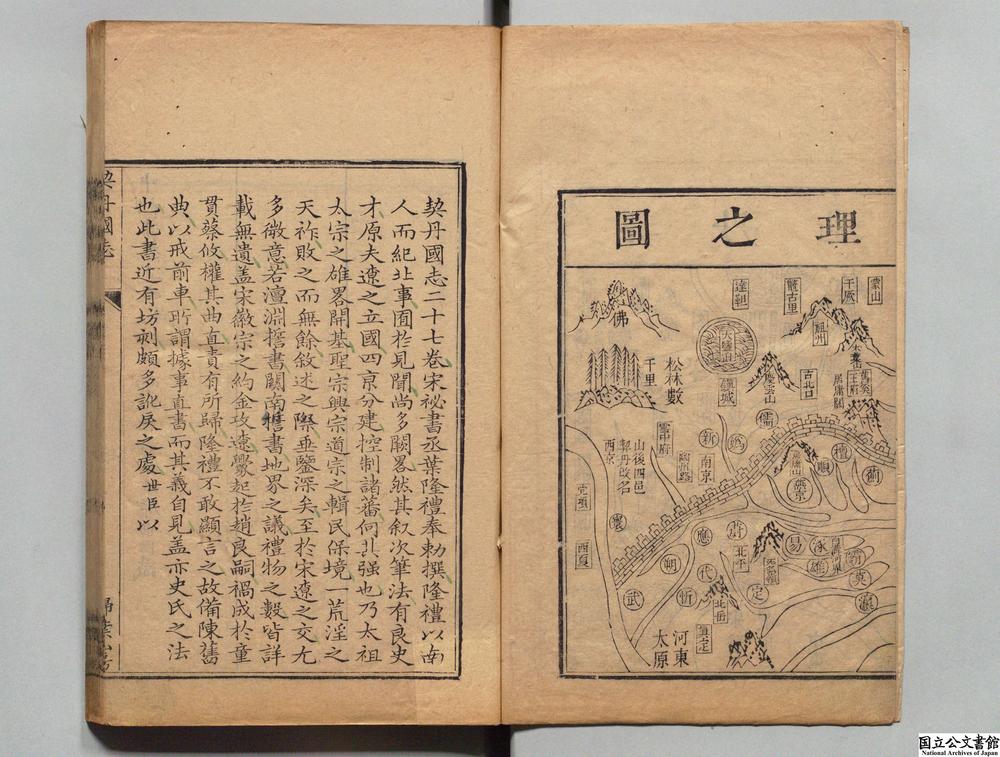 理之圖
蒙山
于厥
鱉古里
達靼
佛
祖州
木葉山
松林數
千里
慶雲山
古北口
居庸關
雲中府
新
媯
儒
檀
薊
順
燕京
南京
山後四邑
契丹改名
西京
寰
應
朔
武
代
忻
蔚
易
涿
雄
霸
莫
瀛
定
北平
北岳
真定
西夏
河東
太原
契丹國志二十七卷宋祕書丞葉隆禮奉勅撰隆禮以南
人而紀北事囿於見聞尚多闕畧然其叙次筆法有良史
才原夫遼之立國四京分建控制諸蕃何其强也乃太祖
太宗之雄畧開基聖宗興宗道宗之輯民保境一荒淫之
天祚敗之而無餘敘述之際垂鑒深矣至於宋遼之交尤
多微意若澶淵誓書關南誓書地界之議禮物之數皆詳
載無遺盖宋徽宗之約金攻遼釁起於趙良嗣禍成於童
貫蔡攸權其曲直責有所歸隆禮不敢顯言之故備陳舊
典以戒前車所謂據事直書而其義自見盖亦史氏之法
也此書近有坊刻頗多訛戾之處世臣以
契丹國志
掃葉山房
国立公文書館
National Archives of Japan